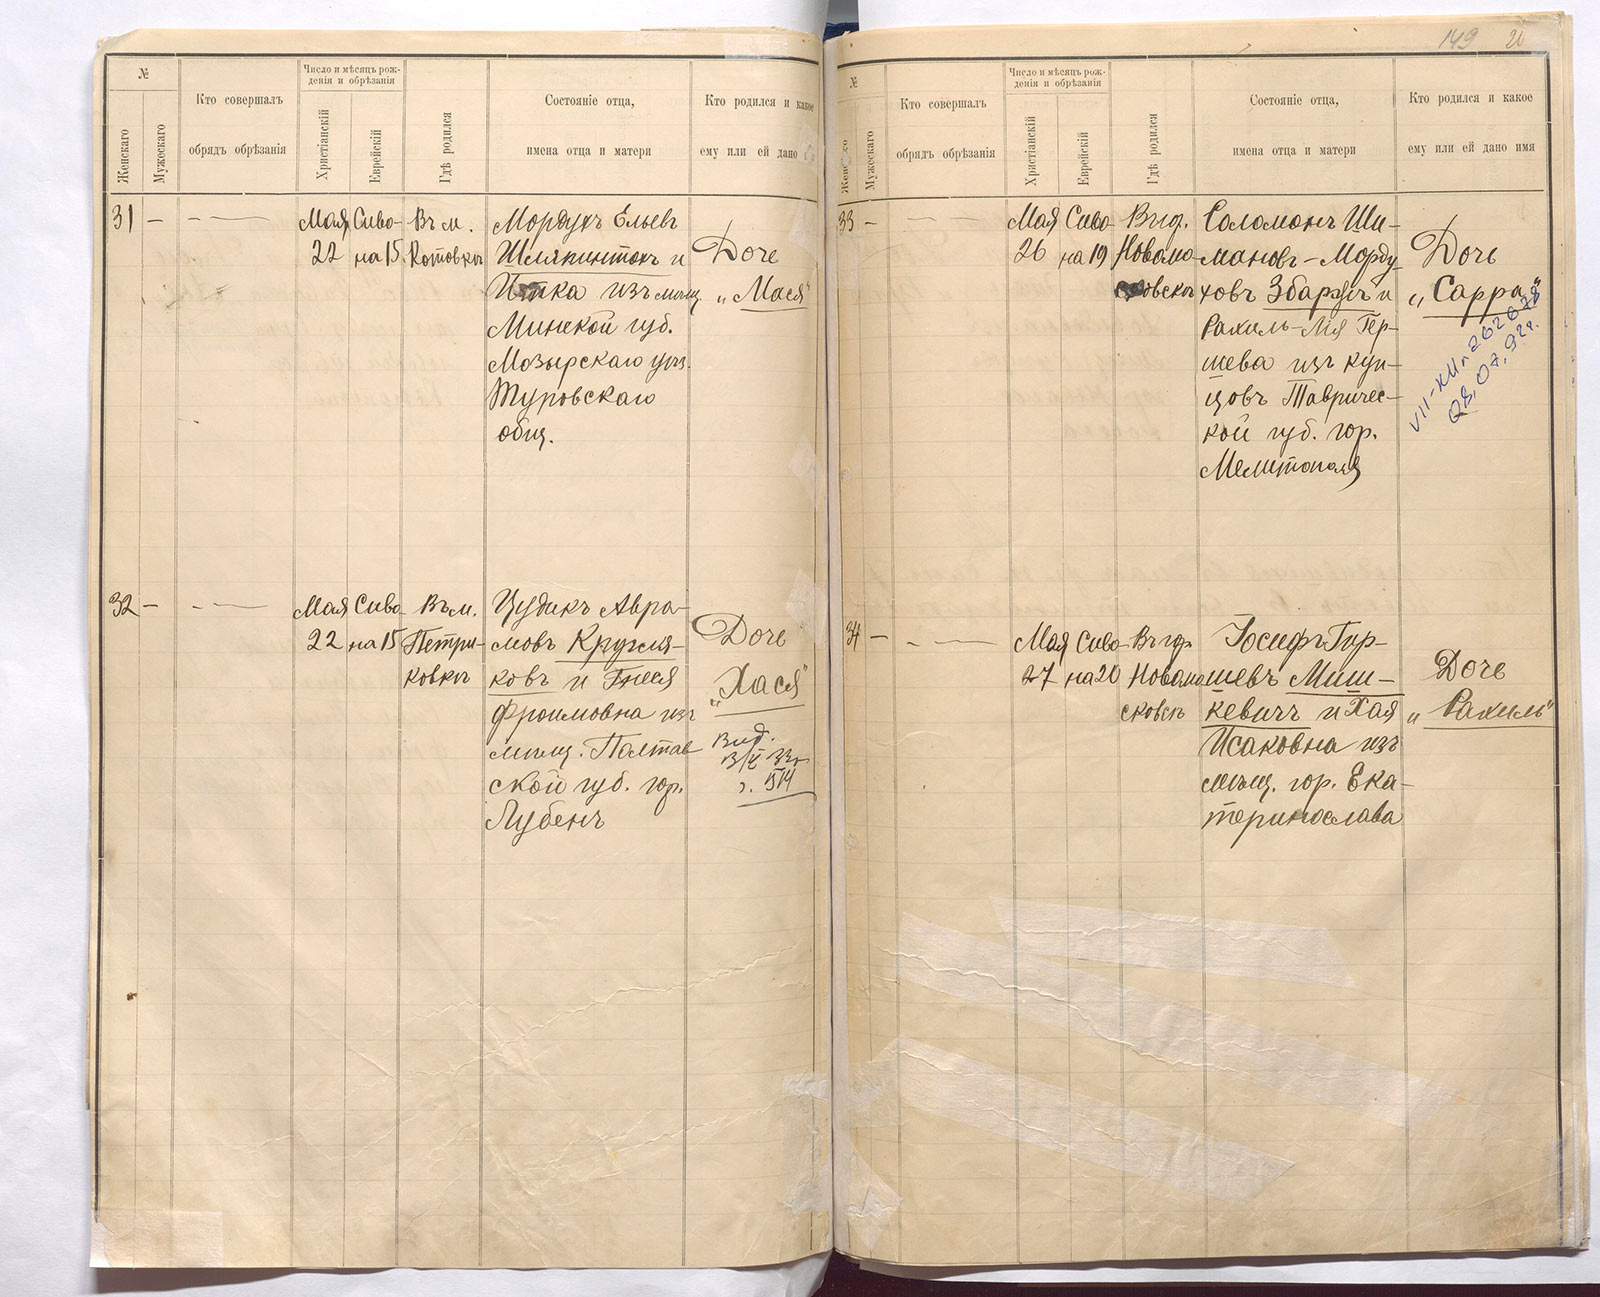 №
Женскаго
Мужескаго
Кто совершалъ
обрядъ обрѣзанія
Число и мѣсяцъ рож-
денія и обрѣзанія
Христіанскій
Еврейскій
Гдѣ родился
Состояніе отца,
имена отца и матери
Кто родился и какое
ему или ей дано
31 — — —
Мая
22
Сиво-
на 15
Въ м.
Котовкѣ
Мордухъ Ельевъ
Шляпинтохъ и
Итка изъ мѣщ.
Минской губ.
Мозырскаго уѣз.
Туровскаго
общ.
Дочь
„Мася"
32 — — —
Мая
22
Сиво
на 15
Въ м.
Петри-
ковкѣ
Цудикъ Авра-
мовъ Кругля-
ковъ и Гнеся
Фроимовна изъ
мѣщ. Полтав
ской губ. гор.
Лубенъ
Дочь
„Хася"
Выд.
149 20
№
Мужескаго
Кто совершалъ
обрядъ обрѣзанія
Число и мѣсяцъ рож-
денія и обрѣзанія
Христіанскій
Еврейскій
Гдѣ родился
Состояніе отца,
имена отца и матери
Кто родился и какое
ему или ей дано имя
33 — — —
Мая
26
Сиво
на 19
В гор.
Новомо-
сковскѣ
Соломонъ Ши-
мановъ-Морду-
ховъ Збархъ и
Рахиль-Лія Гер-
шева изъ куп-
цовъ Тавричес-
кой губ. гор.
Мелитополя
Дочь
„Сарра"
28.07.92г.
34 — — —
Мая
27
Сиво
на 20
Въ гор
Новомо
сковскѣ
Іосифъ Гир-
шевъ Миш-
кевичъ и Хая
Исаковна изъ
мѣщ. гор. Ека-
теринослава
Дочь
„Рахиль"